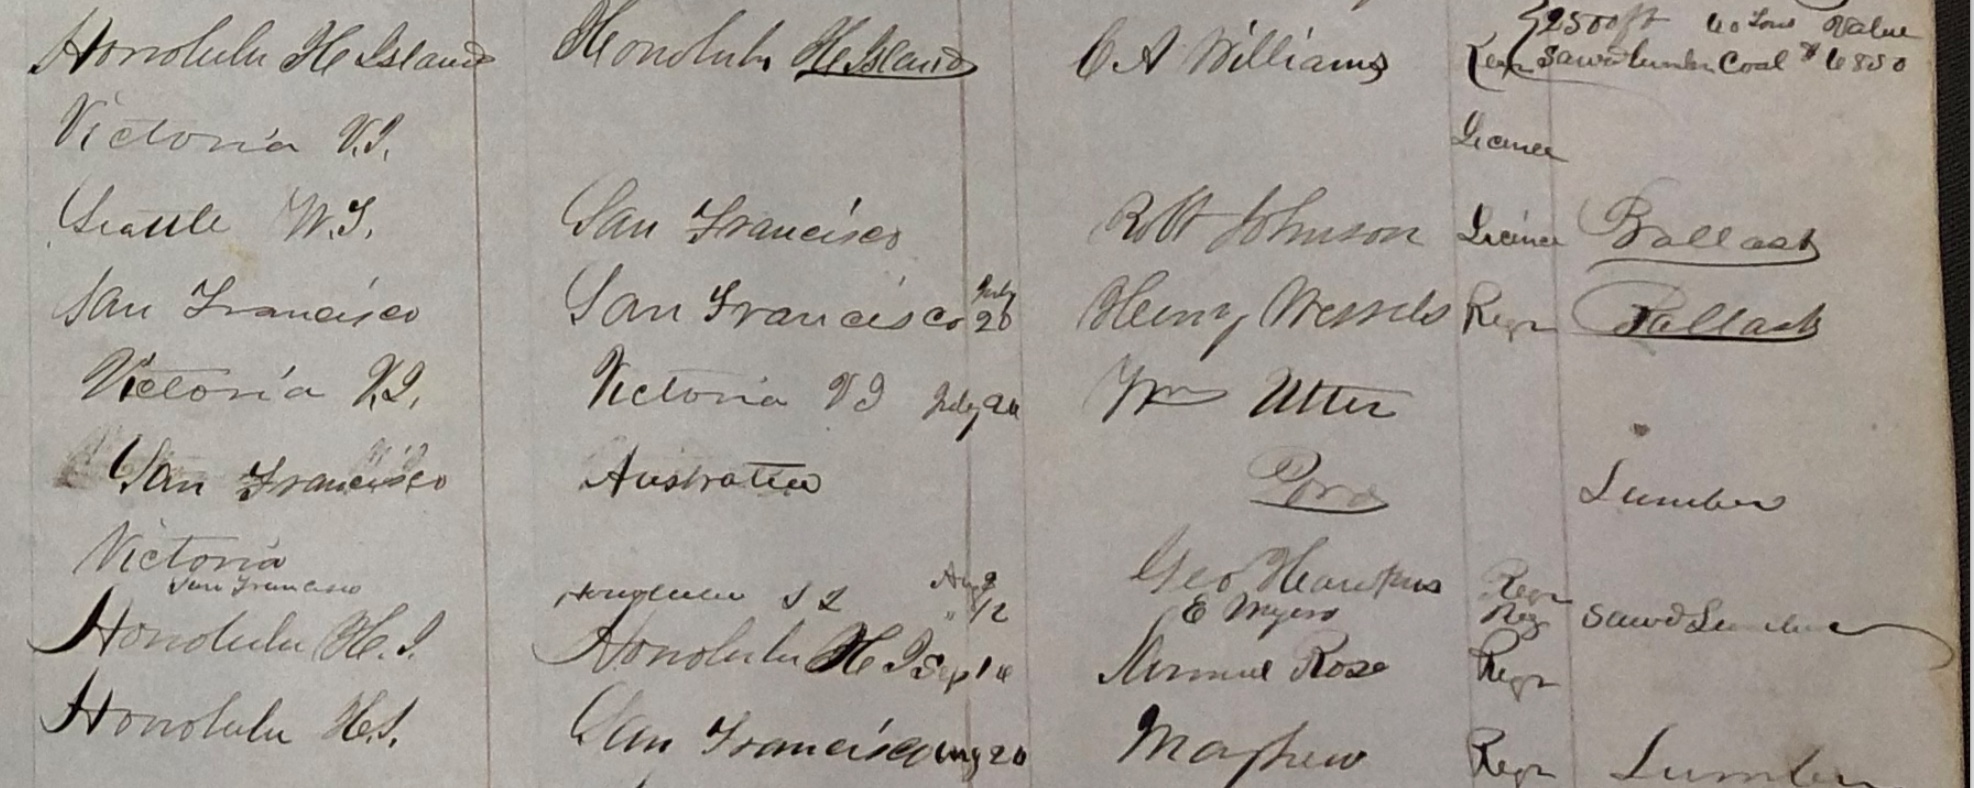 2500ft 60 Tons Value
Honolulu H Island Honolulu H Island C A Williams Regr Sawd Lumber Coal $6850
Victoria V.I. Licence
Seattle W.T. San Francisco Robt Johnson Licence Ballast
July
San Francisco San Francisco 20 Henry Wessels Regr Ballast
Victoria V.I. Victoria V I July 20 Wm Utter
San Francisco Australia Lumber
Victoria Aug 9 Geo Hawkins Regr
San Francisco Honolulu S I " 12 E Myers Reg Sawd Lumber
Honolulu H.I. Honolulu H I Sep 16 Samuel Rose Regr
Honolulu H.I. San Francisco Aug 20 Mayhew Regr Lumber